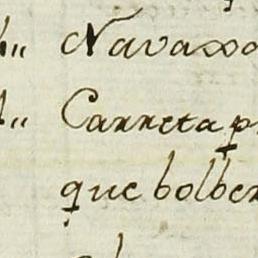 Navaxo
Carreta p
que bolber